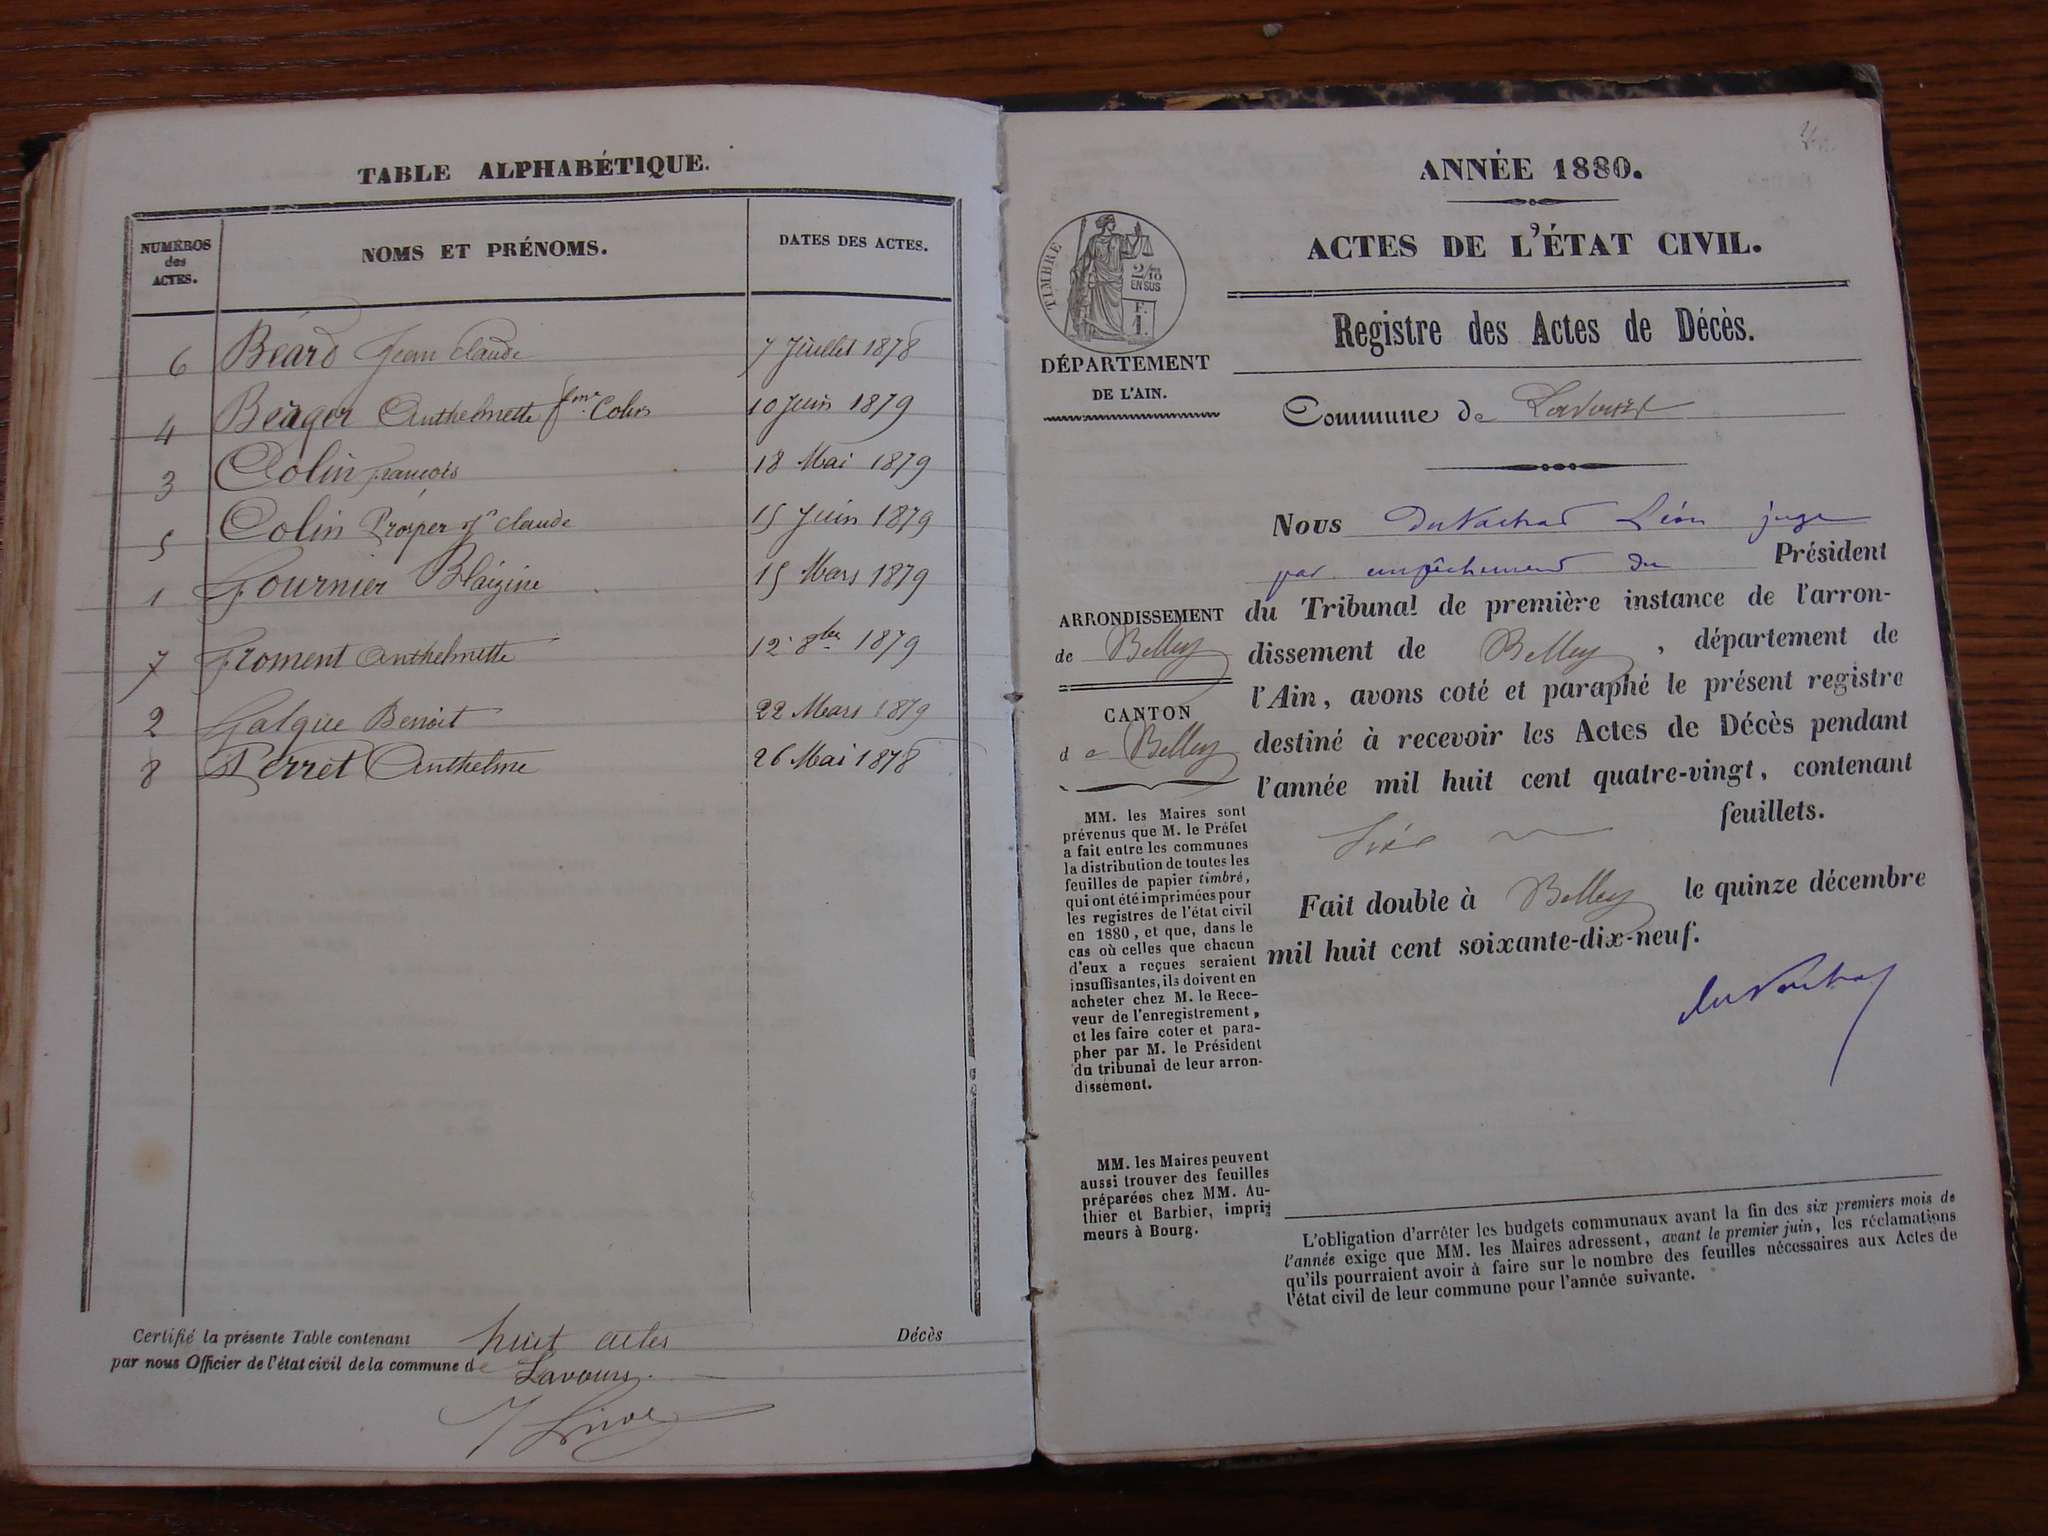 TABLE ALPHABÉTIQUE.
NUMÉROS des ACTES. NOMS ET PRÉNOMS. DATES DES ACTES.
6 Béard Jean Claude 7 Juillet 1878
4 Béager Anthelmette fme Colin 10 Juin 1879
3 Colin François 18 Mai 1879
5 Colin Prosper Claude 15 Juin 1879
1 Fournier Blaizine 15 Mars 1879
7 Froment Anthelmette 12 8bre 1879
2 Benoit 22 Mars 1879
8 Perret Anthelme 26 Mai 1878
Certifié la présente Table contenant huit actes Décès
par nous Officier de l'état civil de la commune de Lavours.
ANNÉE 1880.
ACTES DE L'ÉTAT CIVIL.
Registre des Actes de Décès.
Commune de Lavours
TIMBRE
2/10
EN SUS
F.
1.
DÉPARTEMENT
DE L'AIN.
ARRONDISSEMENT
de Belley
CANTON
de Belley
MM. les Maires sont
prévenus que M. le Préfet
a fait entre les communes
la distribution de toutes les
feuilles de papier timbré,
qui ont été imprimées pour
les registres de l'état civil
en 1880, et que, dans le
cas où celles que chacun
d'eux a reçues seraient
insuffisantes, ils doivent en
acheter chez M. le Rece-
veur de l'enregistrement,
et les faire coter et para-
pher par M. le Président
du tribunal de leur arron-
dissement.
MM. les Maires peuvent
aussi trouver des feuilles
préparées chez MM. Au-
thier et Barbier, impri-
meurs à Bourg.
Nous Léon juge
par empêchement du Président
du Tribunal de première instance de l'arron-
dissement de Belley, département de
l'Ain, avons coté et paraphé le présent registre
destiné à recevoir les Actes de Décès pendant
l'année mil huit cent quatre-vingt, contenant
feuillets.
Fait double à Belley le quinze décembre
mil huit cent soixante-dix-neuf.
L'obligation d'arrêter les budgets communaux avant la fin des six premiers mois de
l'année exige que MM. les Maires adressent, avant le premier juin, les réclamations
qu'ils pourraient avoir à faire sur le nombre des feuilles nécessaires aux Actes de
l'état civil de leur commune pour l'année suivante.